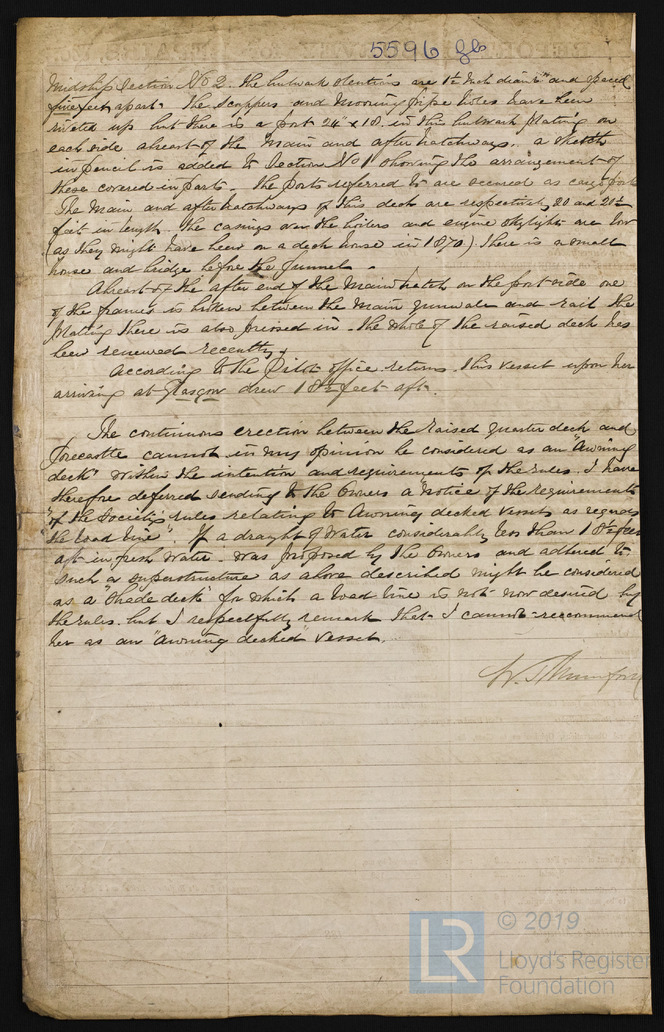 5596 Gls
Midship Section No 2. The bulwark stentions are 1½ Inch diamr and spaced
five feet apart. The Scuppers and Mooring pipe holes have been
riveted up but there is a port 24" x 18 in this bulwark plating on
each side abreast of the Main and after hatchways. a sketch
in pencil is added to Section No 1 showing the arrangement of
these covered in parts. The ports referred to are secured as cargo ports
The Main and after hatchways of this deck are respectively 20 and 20½
feet in length. The casings over the boilers and engine skylight are low
(as they might have been on a deck house in 1870) There is a small
house and bridge before the funnel.
Abreast of the after end of the Main hatch on the port side one
of the frames is broken between the Main gunwale and rail the
plating there is also pressed in. The whole of the raised deck has
been renewed recently.
According to the Pilot office returns. this vessel upon her
arriving at Glasgow drew 18½ feet aft.
The continuous erection between the Raised quarter deck and
forecastle cannot in my opinion be considered as an "Awning
deck" within the intention and requirements of the rules. I have
therefore deferred sending to the Owners a "Notice of the Requirements
"of the Society's rules relating to Awning decked Vessels as regards
the load line". If a draught of water considerably less than 18½ feet
aft in fresh water was proposed by the Owners and adhered to
such a superstructure as above described might be considered
as a "Shade deck" for which a load line is not now desired by
the rules. but I respectfully remark that I cannot recommend
her as an "Awning decked" Vessel.
W. J. Mumford
LR
© 2019
Lloyd's Register
Foundation